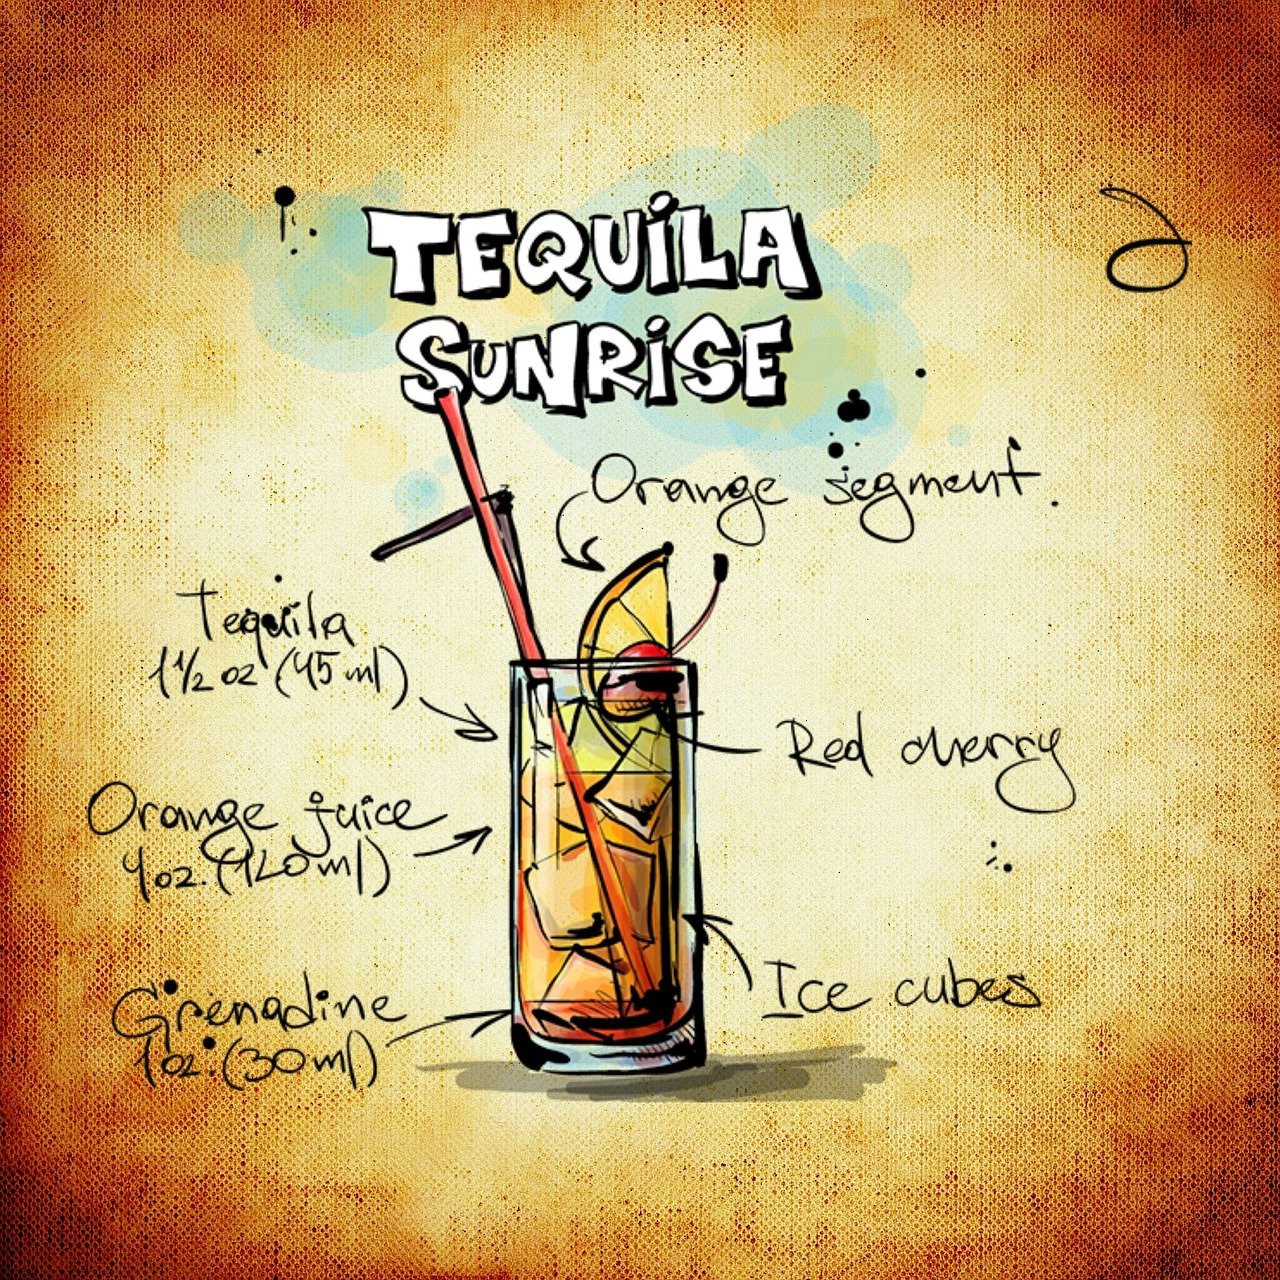 TEQUILA
SUNRISE
Orange segment.
Tequila
1 1/2 oz (45 ml)
Red cherry
Orange juice
4 oz. (120 ml)
Ice cubes
Grenadine
1 oz. (30 ml)